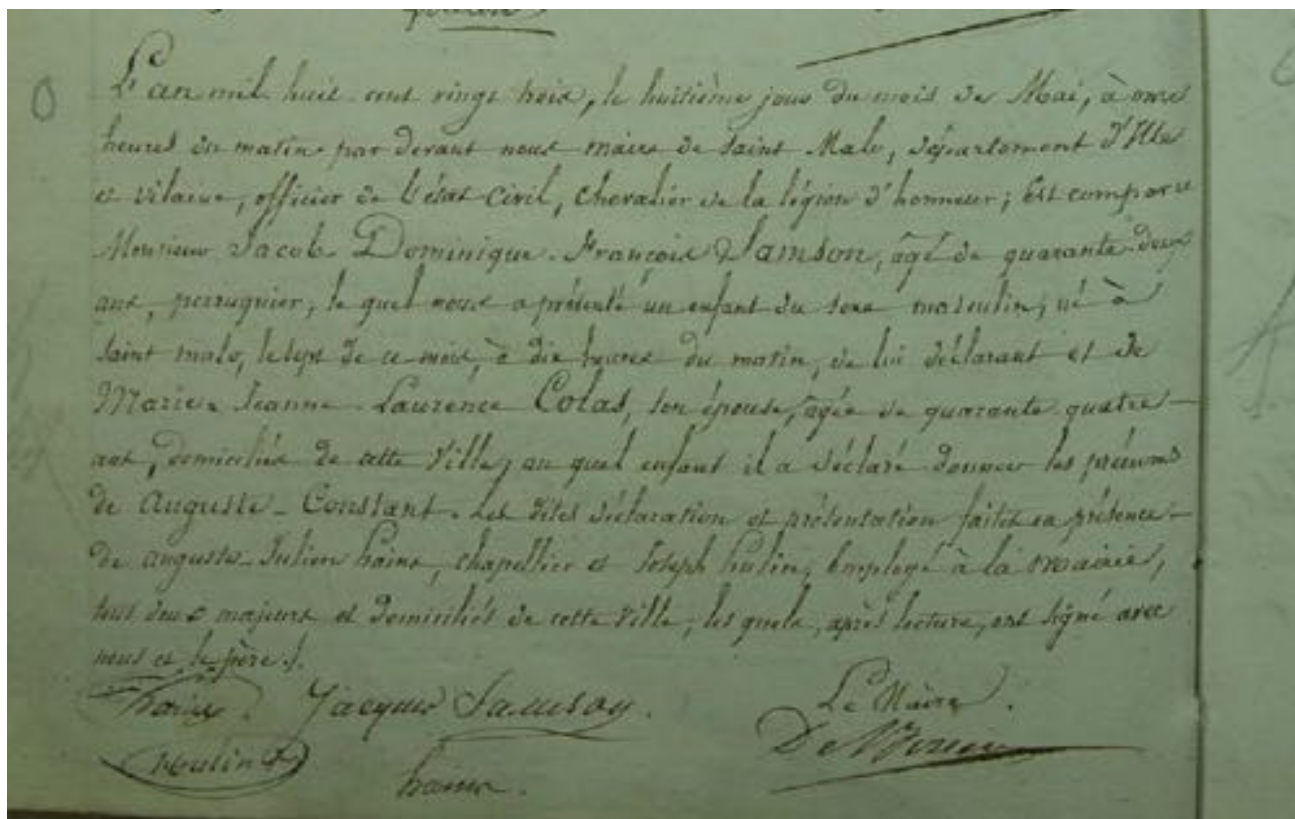 L'an mil huit cent vingt trois, le huitième jour du mois de Mai, à onze
heures du matin par devant nous maire de Saint Malo, département d'Ille
et vilaine, officier de l'état Civil, Chevalier de la légion d'honneur; Est comparu
Monsieur Jacob Dominique François Samson, âgé de quarante deux
ans, perruquier, le quel nous a présenté un enfant du sexe masculin, né à
Saint malo, le sept de ce mois, à dix heures du matin, de lui déclarant et de
Marie Jeanne Laurence Colas, son épouse, agée de quarante quatre
ans, domiciliés de cette Ville, au quel enfant il a déclaré donner les prénoms
de Auguste - Constant. Les dites déclaration et présentation faites en présence
de auguste Julien haine, chapellier et Joseph hulin, Employé à la mairie,
tous deux majeurs et domiciliés de cette Ville; les quels, après lecture, ont signé avec
nous et le père ./.
Jacques Samson.
Le Maire.
hulin